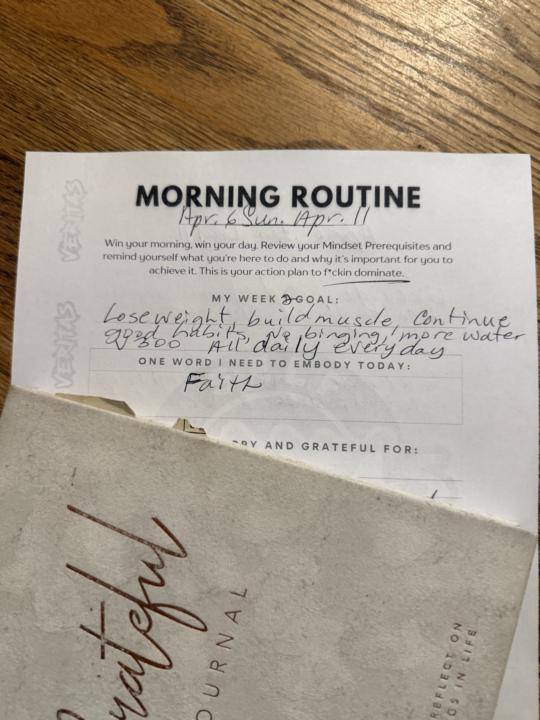 MORNING ROUTINE
Apr. 6 Sun. Apr. 11
Win your morning, win your day. Review your Mindset Prerequisites and
remind yourself what you're here to do and why it's important for you to
achieve it. This is your action plan to f*ckin dominate.
MY WEEK 2 GOAL:
Lose weight, build muscle, Continue
good habits, No binging, more water
All daily every day
ONE WORD I NEED TO EMBODY TODAY:
Faith
AND GRATEFUL FOR:
VERITAS
VERITAS
Grateful
JOURNAL
REFLECT ON
GS IN LIFE